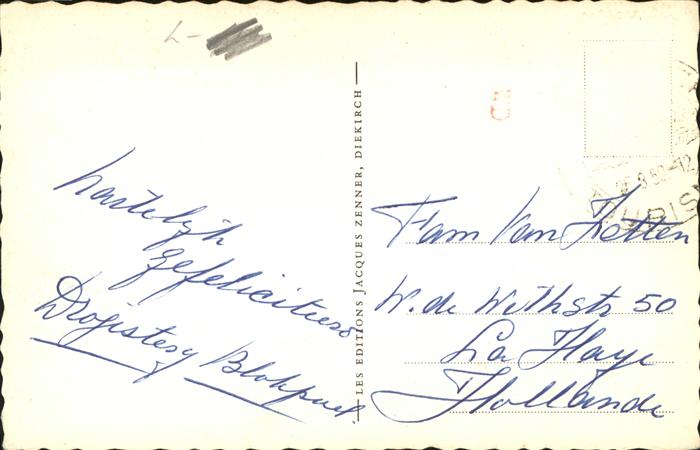 L-
hartelijk
gefeliciteerd
Drogistery Blokpoel.
LES EDITIONS JACQUES ZENNER, DIEKIRCH
Fam Van Zetten
W. de Withstr 50
La Haye
Hollande